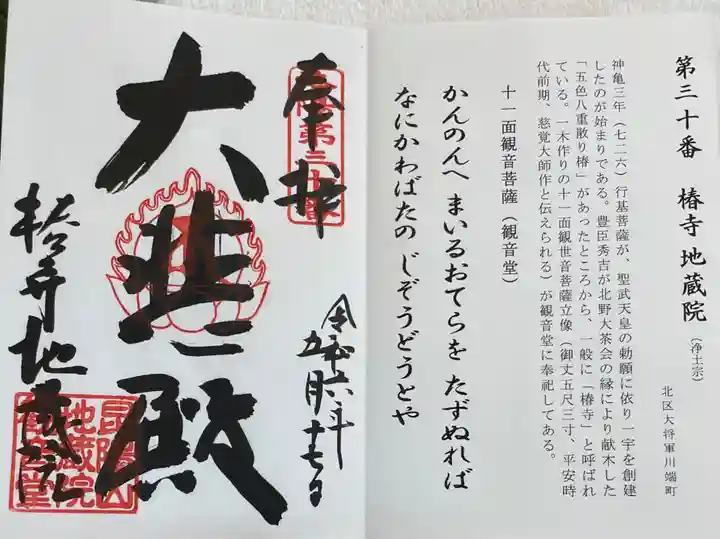 第三十番 椿寺 地蔵院
(浄土宗)
北区大将軍川端町
神亀三年(七二六)行基菩薩が、聖武天皇の勅願に依り一宇を創建
したのが始まりである。豊臣秀吉が北野大茶会の縁により献木した
「五色八重散り椿」があったところから、一般に「椿寺」と呼ばれ
ている。一木作りの十一面観世音菩薩立像(御丈五尺三寸、平安時
代前期、慈覚大師作と伝えられる)が観音堂に奉祀してある。
十一面観音菩薩(観音堂)
かんのんへ まいるおてらを たずぬれば
なにかわばたの じぞうどうとや
奉拝
第三十番
令和六年
五月十七日
大悲殿
椿寺地蔵院
昆陽山
地蔵院
観音堂